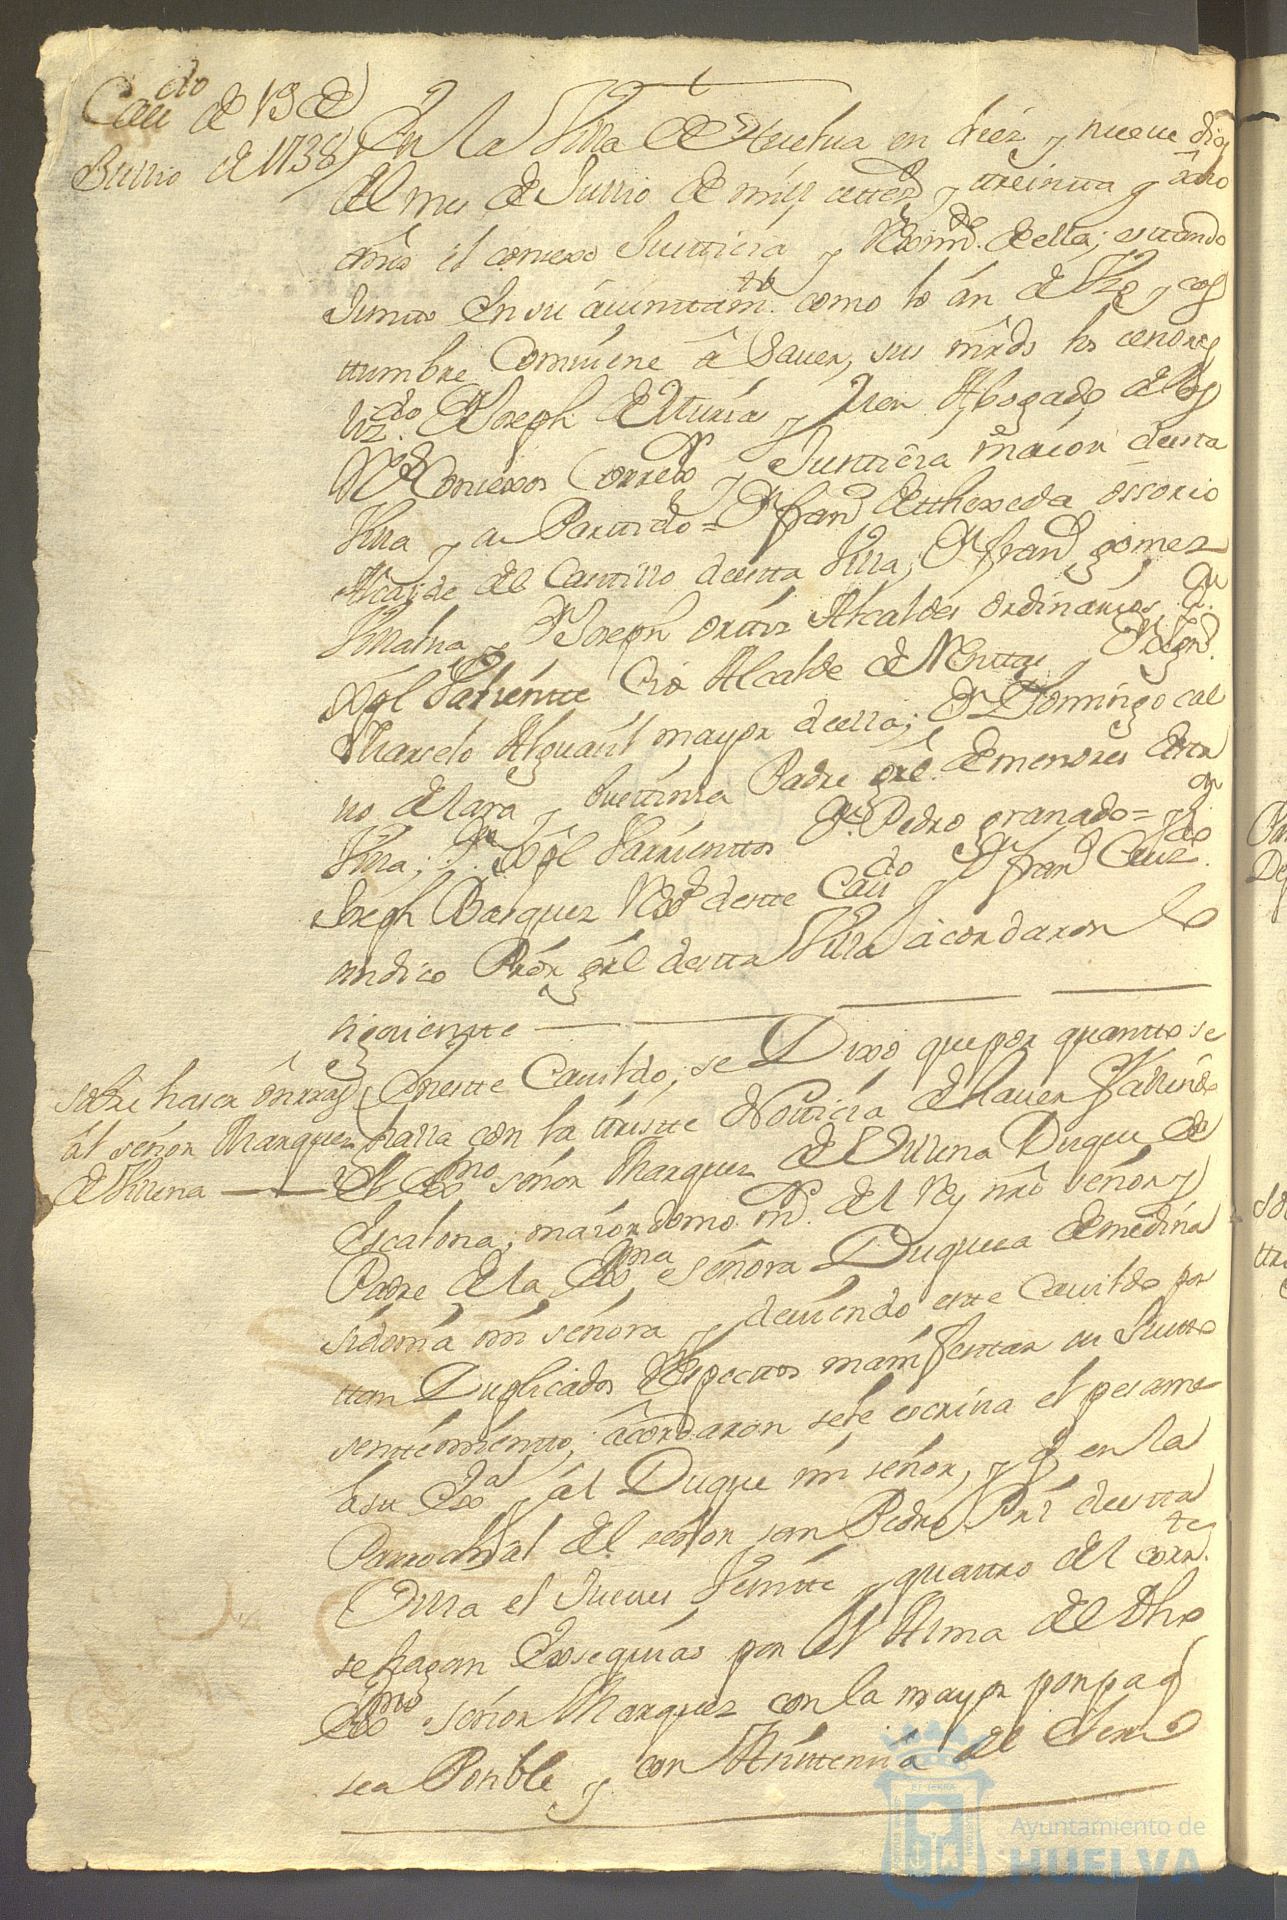 Cau.do de 19 de
Junio de 1738
En la Villa de Huelva en diez y nueve dias
del mes de Junio de mill settez.s y treintta y ocho
años el consexo Justticia y Reximi.to de ella; esttando
Juntto en su aiunttam.to como lo an de Vzo y cos
ttumbre Combiene â Saver, sus mrds. los cenores
liz.do D.n Joseph de Abogado de los
R.s Consexos Correx.or y Justticia maior destta
Villa y su Parttido= D.n fran.co de Hereda ossorio
Alcaide del Casttillo destta Villa; D.n fran.co gomez
y D.n Joseph orttiz Alcaldes ordinarios, D.n
Xptl Valientte Alcalde de y D.n
Marcelo Alguazil mayor de ella; D.n Domingo cal
vo de lara y Padre gral. de menores destta
Villa; D.n Xptl Barrienttos D.n Pedro granado= y D.n
Joseph Barquez Rex.s destte Cau.do y D.n fran.co Cruz
sindico Prór gral destta Villa acordaron lo
siguientte
sobre haser ônrras
al señor Marquez
de Villena
En estte Cavildo, se Dixo que por quantto se
halla con la tristte Notticia de haver fallecido
el Ex.mo señor Marquez de Villena Duque de
Escalona, maiordomo m.or del Rey nrô señor y
Padre de la Ex.ma señora Duquesa de medina
sidonia mi señora y deviendo estte Cavildo por
ttan Duplicados Respecttos manifesttar su Justto
senttimientto, acordaron se le escriva el pesame
â su Ex.a y al Duque mi señor, y q en la
Parrochial del señor san Pedro destta
Villa el Jueves Veintte y quattro del corr.te
se hagan Exsequias por el Alma del dho
Ex.mo señor Marquez con la mayor ponpa q
sea Posible y con Asistencia del clero
Ayuntamiento de
HUELVA